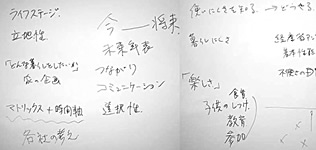 ライフステージ.
立地性
「どんな暮らしをしたいか」
家の企画
マトリックス＋時間軸
各社の考え
今 ― 将来
未来年表
つながり
コミュニケーション
選択性.
使いにくさを知る
暮らしにくさ
「楽しさ」
食育
子供のしつけ.
教育
参加
基本性能
不便さの